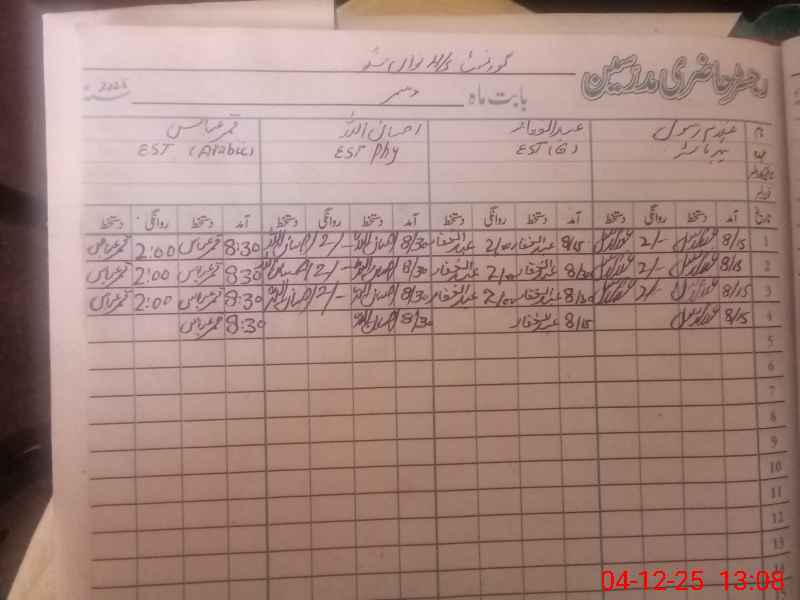 رجسٹر حاضری مدرسین
گورنمنٹ
بابت ماہ دسمبر 2025
نام غلام رسول عبدالغفار احسان اللہ قمر عباس
عہدہ EST (G) EST Phy EST (Arabic)
تاریخ آمد دستخط روانگی دستخط آمد دستخط روانگی دستخط آمد دستخط روانگی دستخط آمد دستخط روانگی دستخط
1 8/15 غلام رسول 2/- غلام رسول 8/15 عبدالغفار 2/00 عبدالغفار 8/30 احسان اللہ 2/- احسان اللہ 8:30 قمر عباس 2:00 قمر عباس
2 8/15 غلام رسول 2/- غلام رسول 8/30 عبدالغفار 2/00 عبدالغفار 8/30 احسان اللہ 2/- احسان اللہ 8:30 قمر عباس 2:00 قمر عباس
3 8/15 غلام رسول 2/- غلام رسول 8/30 عبدالغفار 2/00 عبدالغفار 8/30 احسان اللہ 2/- احسان اللہ 8:30 قمر عباس 2:00 قمر عباس
4 8/15 غلام رسول 8/15 عبدالغفار 8/30 احسان اللہ 8:30 قمر عباس
5
6
7
8
9
10
11
12
13
14
04-12-25 13:08